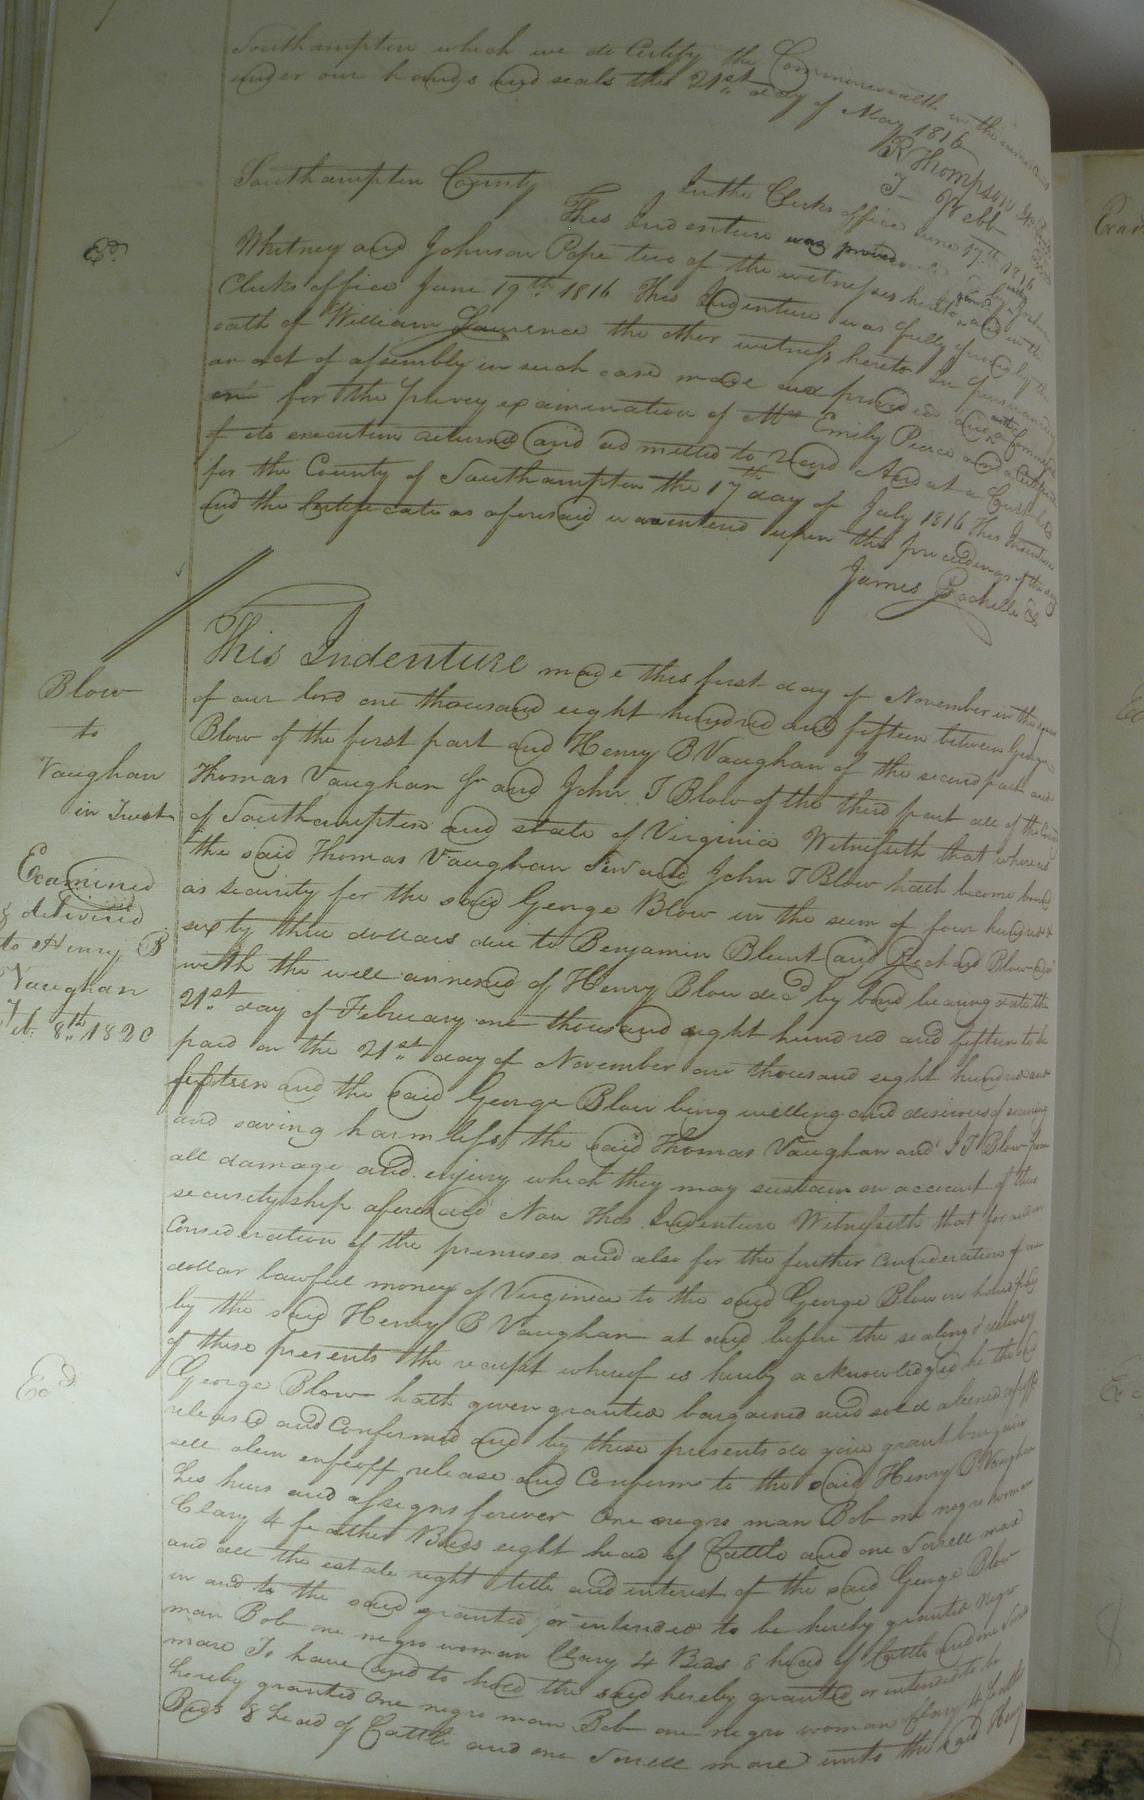 Southampton which we do Certify the Commonwealth in the
under our hands and seals this 21st day of May 1816
R Thompson
T Webb
Southampton County In the Clerks office June 17th 1816
This Indenture was proved
Whitney and Johnson Pope two of the witnesses hereto and in the
Clerks office June 19th 1816 This Indenture was fully proved by the
oath of William Laurence the other witness hereto In pursuance
an act of assembly in such case made and provided and
for the privey examination of Mrs Emily Peirce and a Certificate
of its execution returned and admitted to record And at a Court held
for the County of Southampton the 17th day of July 1816 This Indenture
and the Certificate as aforesaid was entered upon the proceedings of the day
James Rochelle
Ed
This Indenture made this first day of November in the year
of our lord one thousand eight hundred and fifteen between George
Blow of the first part and Henry B Vaughan of the second part and
Thomas Vaughan Jr and John T Blow of the third part all of the County
of Southampton and state of Virginia Witnesseth that whereas
the said Thomas Vaughan and John T Blow hath become bound
as security for the said George Blow in the sum of four hundred &
sixty three dollars due to Benjamin Blunt and Blow
with the will annexed of Henry Blow decd by bond bearing date the
21st day of February one thousand eight hundred and fifteen to be
paid on the 21st day of November one thousand eight hundred and
fifteen and the said George Blow being willing and desirous of securing
and saving harmless the said Thomas Vaughan and J T Blow from
all damage and injury which they may sustain on account of their
securityship aforesaid Now this Indenture Witnesseth that for and in
Consideration of the premises and also for the further consideration of one
dollar lawful money of Virginia to the said George Blow in hand paid
by the said Henry B Vaughan at and before the sealing & delivery
of these presents the receipt whereof is hereby acknowledged he the said
George Blow hath given granted bargained and sold aliened
released and Confirmed and by these presents do give grant bargain
sell alien enfeoff release and Confirm to the said Henry B Vaughan
his heirs and assigns forever One negro man Bob one negro woman
Clary 4 feather Beds eight head of Cattle and one Sorrell mare
and all the estate right title and interest of the said George Blow
in and to the said granted or intended to be hereby granted Negro
man Bob one negro woman Clary 4 Beds 8 head of Cattle and one Sorrell
mare To have and to hold the said hereby granted or intended to be
hereby granted One negro man Bob one negro woman Clary 4 feather
Beds 8 head of Cattle and one Sorrell mare unto the said Henry
Blow
to
Vaughan
in Trust
Examined
& delivered
to Henry B
Vaughan
Feb: 8th 1820
Exd